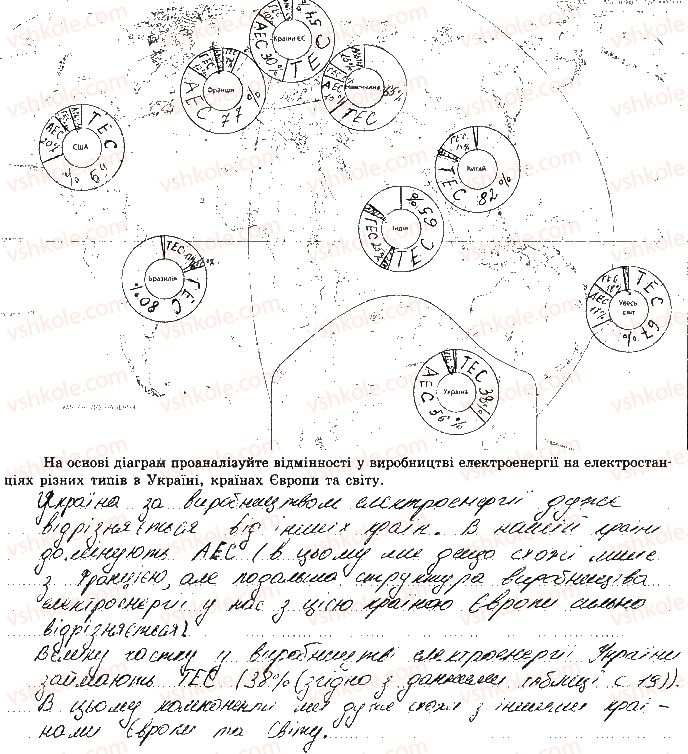 Країни ЄС
АЕС 30%
ТЕС 54
Франція
АЕС 77 %
Німеччина
АЕС
ТЕС
США
ТЕС 69 %
АЕС 20%
Китай
ТЕС 82 %
Індія
ТЕС 65 %
Бразилія
ГЕС 80%
Увесь світ
ТЕС 67 %
Україна
ТЕС 38%
АЕС 56 %
vshkole.com
На основі діаграм проаналізуйте відмінності у виробництві електроенергії на електростан-
ціях різних типів в Україні, країнах Європи та світу.
Україна за виробництвом електроенергії дуже
відрізняється від інших країн. В нашій країні
домінують АЕС (в цьому ми дещо схожі лише
з Францією, але подальша структура виробництва
електроенергії у нас з цією країною Європи сильно
відрізняється!
Велику частку у виробництві електроенергії України
займають ТЕС (38% (згідно з даними таблиці с 19)).
В цьому компоненті ми дуже схожі з іншими краї-
нами Європи та Світу.